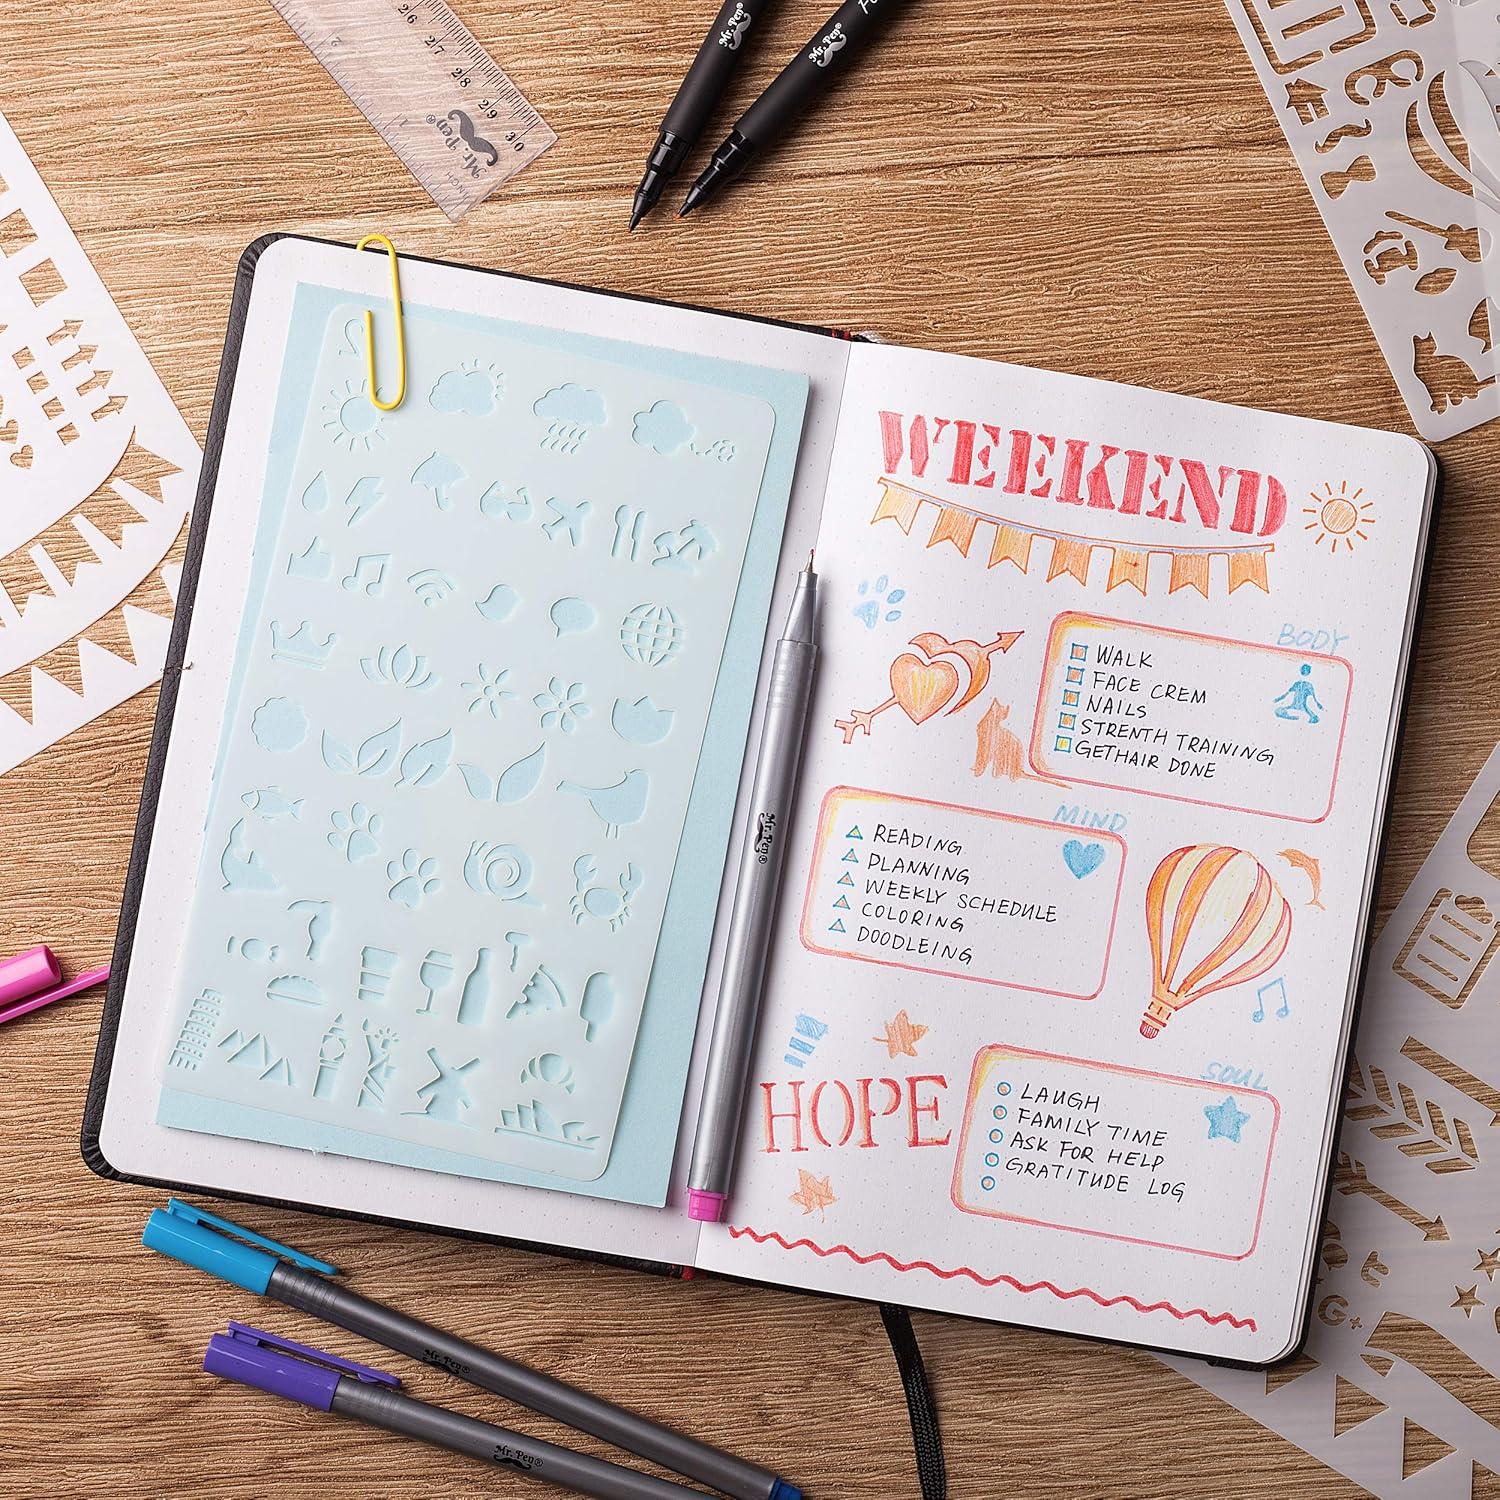 26 27 28 29 30
Mr. Pen®
INCH
1
2
Mr. Pen®
Mr. Pen®
WEEKEND
BODY
WALK
FACE CREM
NAILS
STRENTH TRAINING
GETHAIR DONE
MIND
READING
PLANNING
WEEKLY SCHEDULE
COLORING
DOODLEING
Mr. Pen®
HOPE
SOUL
LAUGH
FAMILY TIME
ASK FOR HELP
GRATITUDE LOG
Mr. Pen®
Mr. Pen®